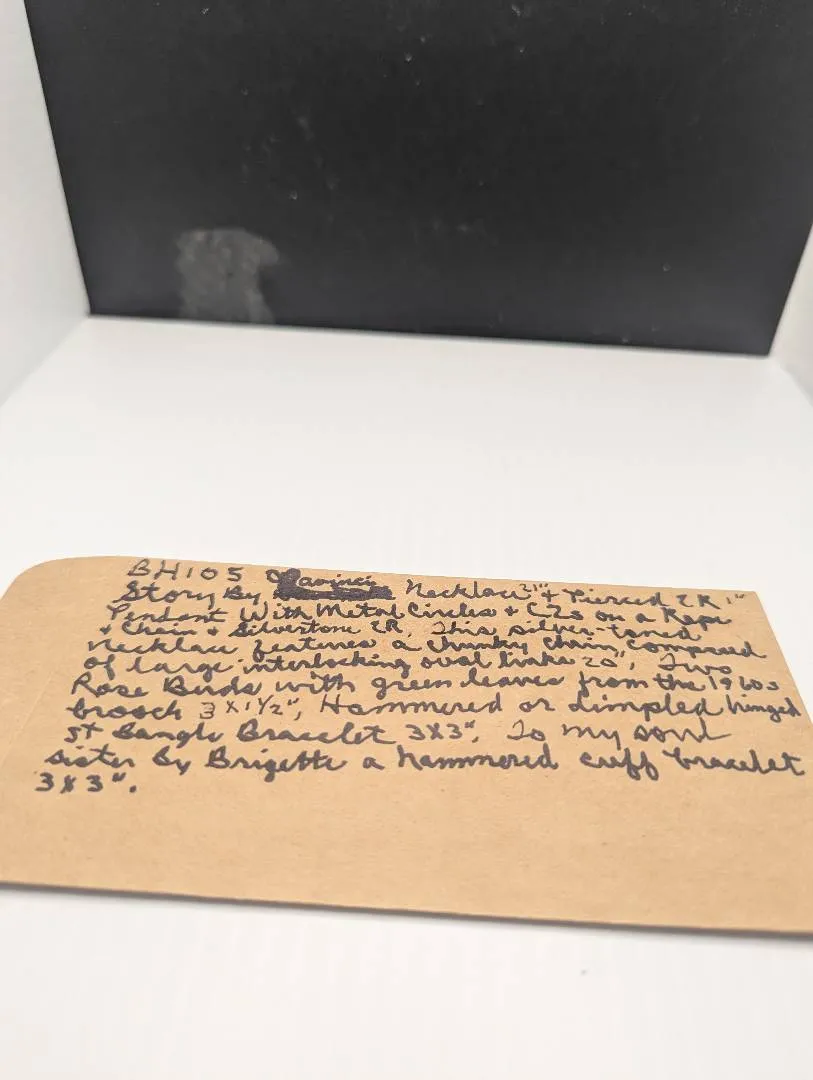 BH105 Necklace 21" + Pierced ER 1"
Story By
Pendant With Metal Circles + CZs on a Rope
+ Chain + Silvertone ER. This silver-toned
necklace features a chunky chain composed
of large interlocking oval links 20", Two
Rose Buds with green leaves from the 1960s
brooch 3x1½", Hammered or dimpled hinged
st Bangle Bracelet 3x3", To my soul
sister By Brigette a hammered cuff bracelet
3x3".